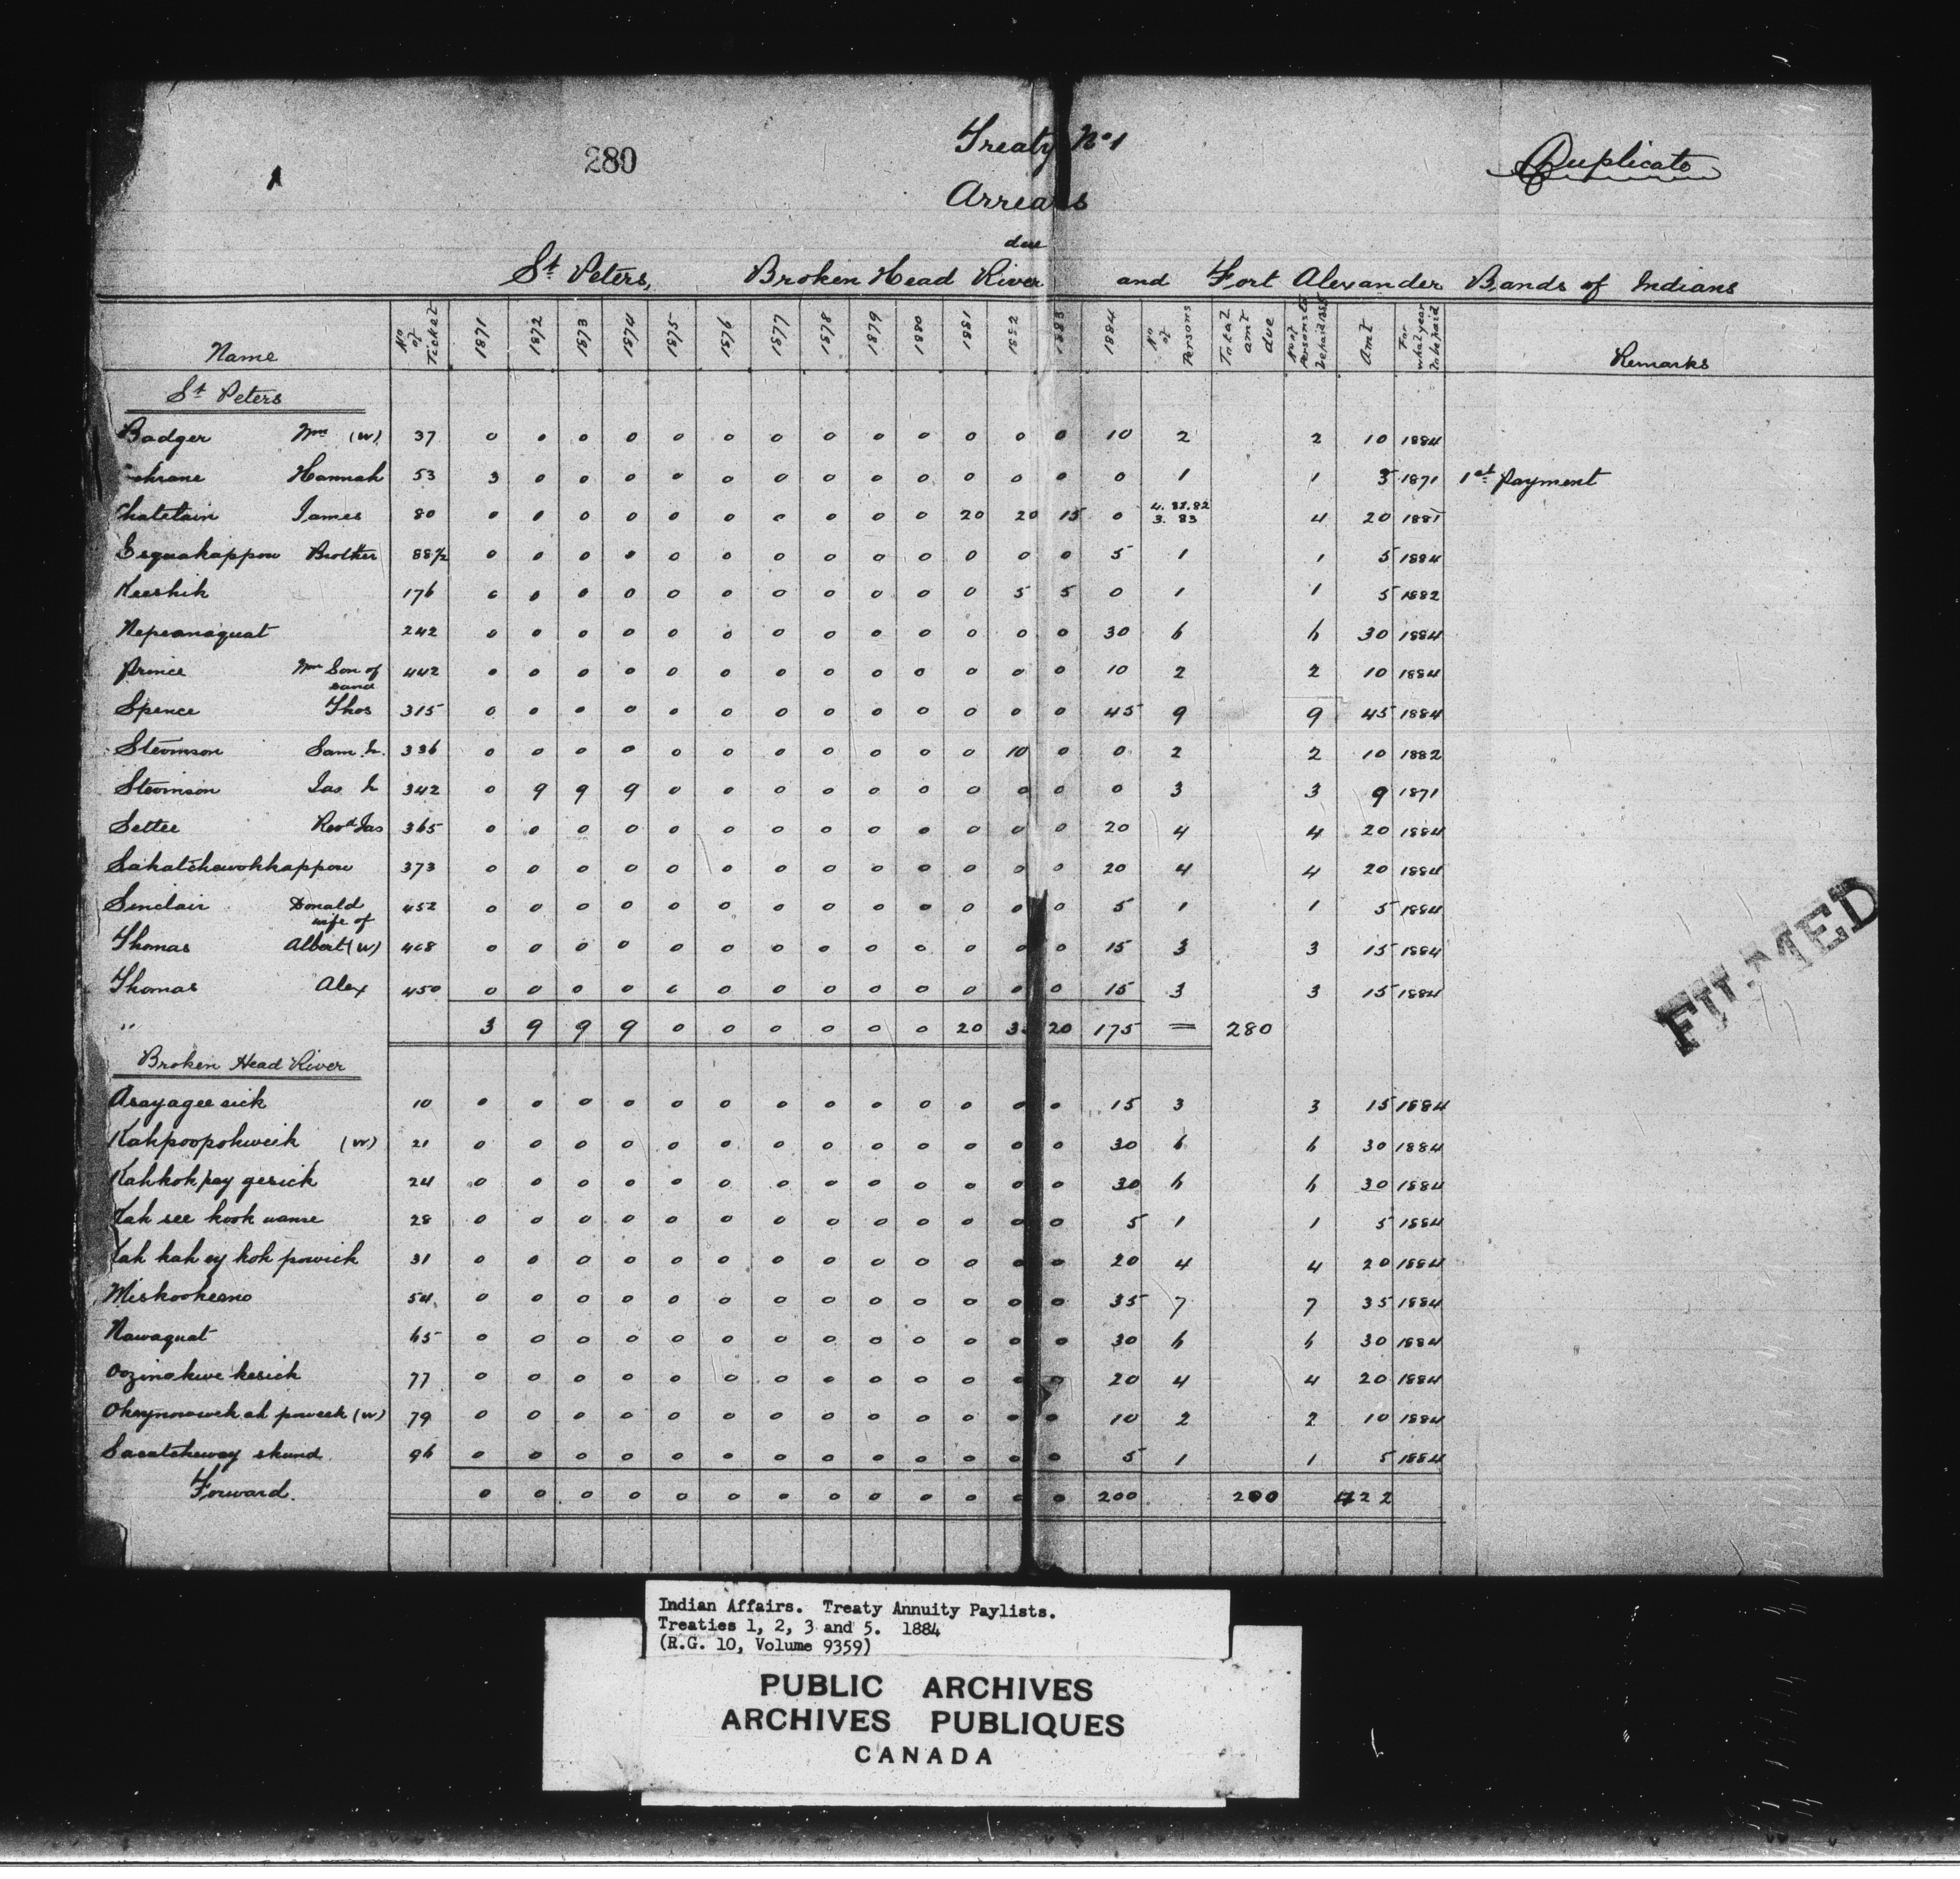 280
Treaty No 1
Duplicate
Arrears
due
St Peters, Broken Head River and Fort Alexander Bands of Indians
Name No of Ticket 1871 1872 1873 1874 1875 1876 1877 1878 1879 1880 1881 1882 1883 1884 No of Persons Total amt due No of Persons to be paid Amt For what year to be paid Remarks
St Peters
Badger Wm (W) 37 0 0 0 0 0 0 0 0 0 0 0 0 0 10 2 2 10 1884
chrane Hannah 53 3 0 0 0 0 0 0 0 0 0 0 0 0 0 1 1 3 1871 1st Payment
Chatelain James 80 0 0 0 0 0 0 0 0 0 0 20 20 15 0 4. 81.82 3. 83 4 20 1881
Esquakappow Brother 88½ 0 0 0 0 0 0 0 0 0 0 0 0 0 5 1 1 5 1884
Keeshik 176 0 0 0 0 0 0 0 0 0 0 0 5 5 0 1 1 5 1882
Nepeanaquat 242 0 0 0 0 0 0 0 0 0 0 0 0 0 30 6 6 30 1884
Prince Wm Son of 442 0 0 0 0 0 0 0 0 0 0 0 0 0 10 2 2 10 1884
Spence Thos 315 0 0 0 0 0 0 0 0 0 0 0 0 0 45 9 9 45 1884
Stevinson Sam. 336 0 0 0 0 0 0 0 0 0 0 0 10 0 0 2 2 10 1882
Stevinson Jas 342 0 9 9 9 0 0 0 0 0 0 0 0 0 0 3 3 9 1871
Settee Revd Jas 365 0 0 0 0 0 0 0 0 0 0 0 0 0 20 4 4 20 1884
Sakatchewohkappow 373 0 0 0 0 0 0 0 0 0 0 0 0 0 20 4 4 20 1884
Sinclair Donald wife of 452 0 0 0 0 0 0 0 0 0 0 0 0 0 5 1 1 5 1884
Thomas Albert (W) 408 0 0 0 0 0 0 0 0 0 0 0 0 0 15 3 3 15 1884
Thomas Alex 450 0 0 0 0 0 0 0 0 0 0 0 0 0 15 3 3 15 1884
" 3 9 9 9 0 0 0 0 0 0 20 3 20 175 = 280
FILMED
Broken Head River
Asayagee sick 10 0 0 0 0 0 0 0 0 0 0 0 0 0 15 3 3 15 1884
Kahpoopokweik (W) 21 0 0 0 0 0 0 0 0 0 0 0 0 0 30 6 6 30 1884
Kahkok pay gesick 24 0 0 0 0 0 0 0 0 0 0 0 0 0 30 6 6 30 1884
Kah see kook wanse 28 0 0 0 0 0 0 0 0 0 0 0 0 0 5 1 1 5 1884
Kah kah ey kok powick 31 0 0 0 0 0 0 0 0 0 0 0 0 0 20 4 4 20 1884
Miskookeeno 54 0 0 0 0 0 0 0 0 0 0 0 0 0 35 7 7 35 1884
Nawaquat 65 0 0 0 0 0 0 0 0 0 0 0 0 0 30 6 6 30 1884
Oozinakwe kesick 77 0 0 0 0 0 0 0 0 0 0 0 0 0 20 4 4 20 1884
Okeynowwek ah poweek (W) 79 0 0 0 0 0 0 0 0 0 0 0 0 0 10 2 2 10 1884
Sasatcheway skund 96 0 0 0 0 0 0 0 0 0 0 0 0 0 5 1 1 5 1884
Forward. 0 0 0 0 0 0 0 0 0 0 0 0 0 200 200 422
Indian Affairs. Treaty Annuity Paylists.
Treaties 1, 2, 3 and 5. 1884
(R.G. 10, Volume 9359)
PUBLIC ARCHIVES
ARCHIVES PUBLIQUES
CANADA